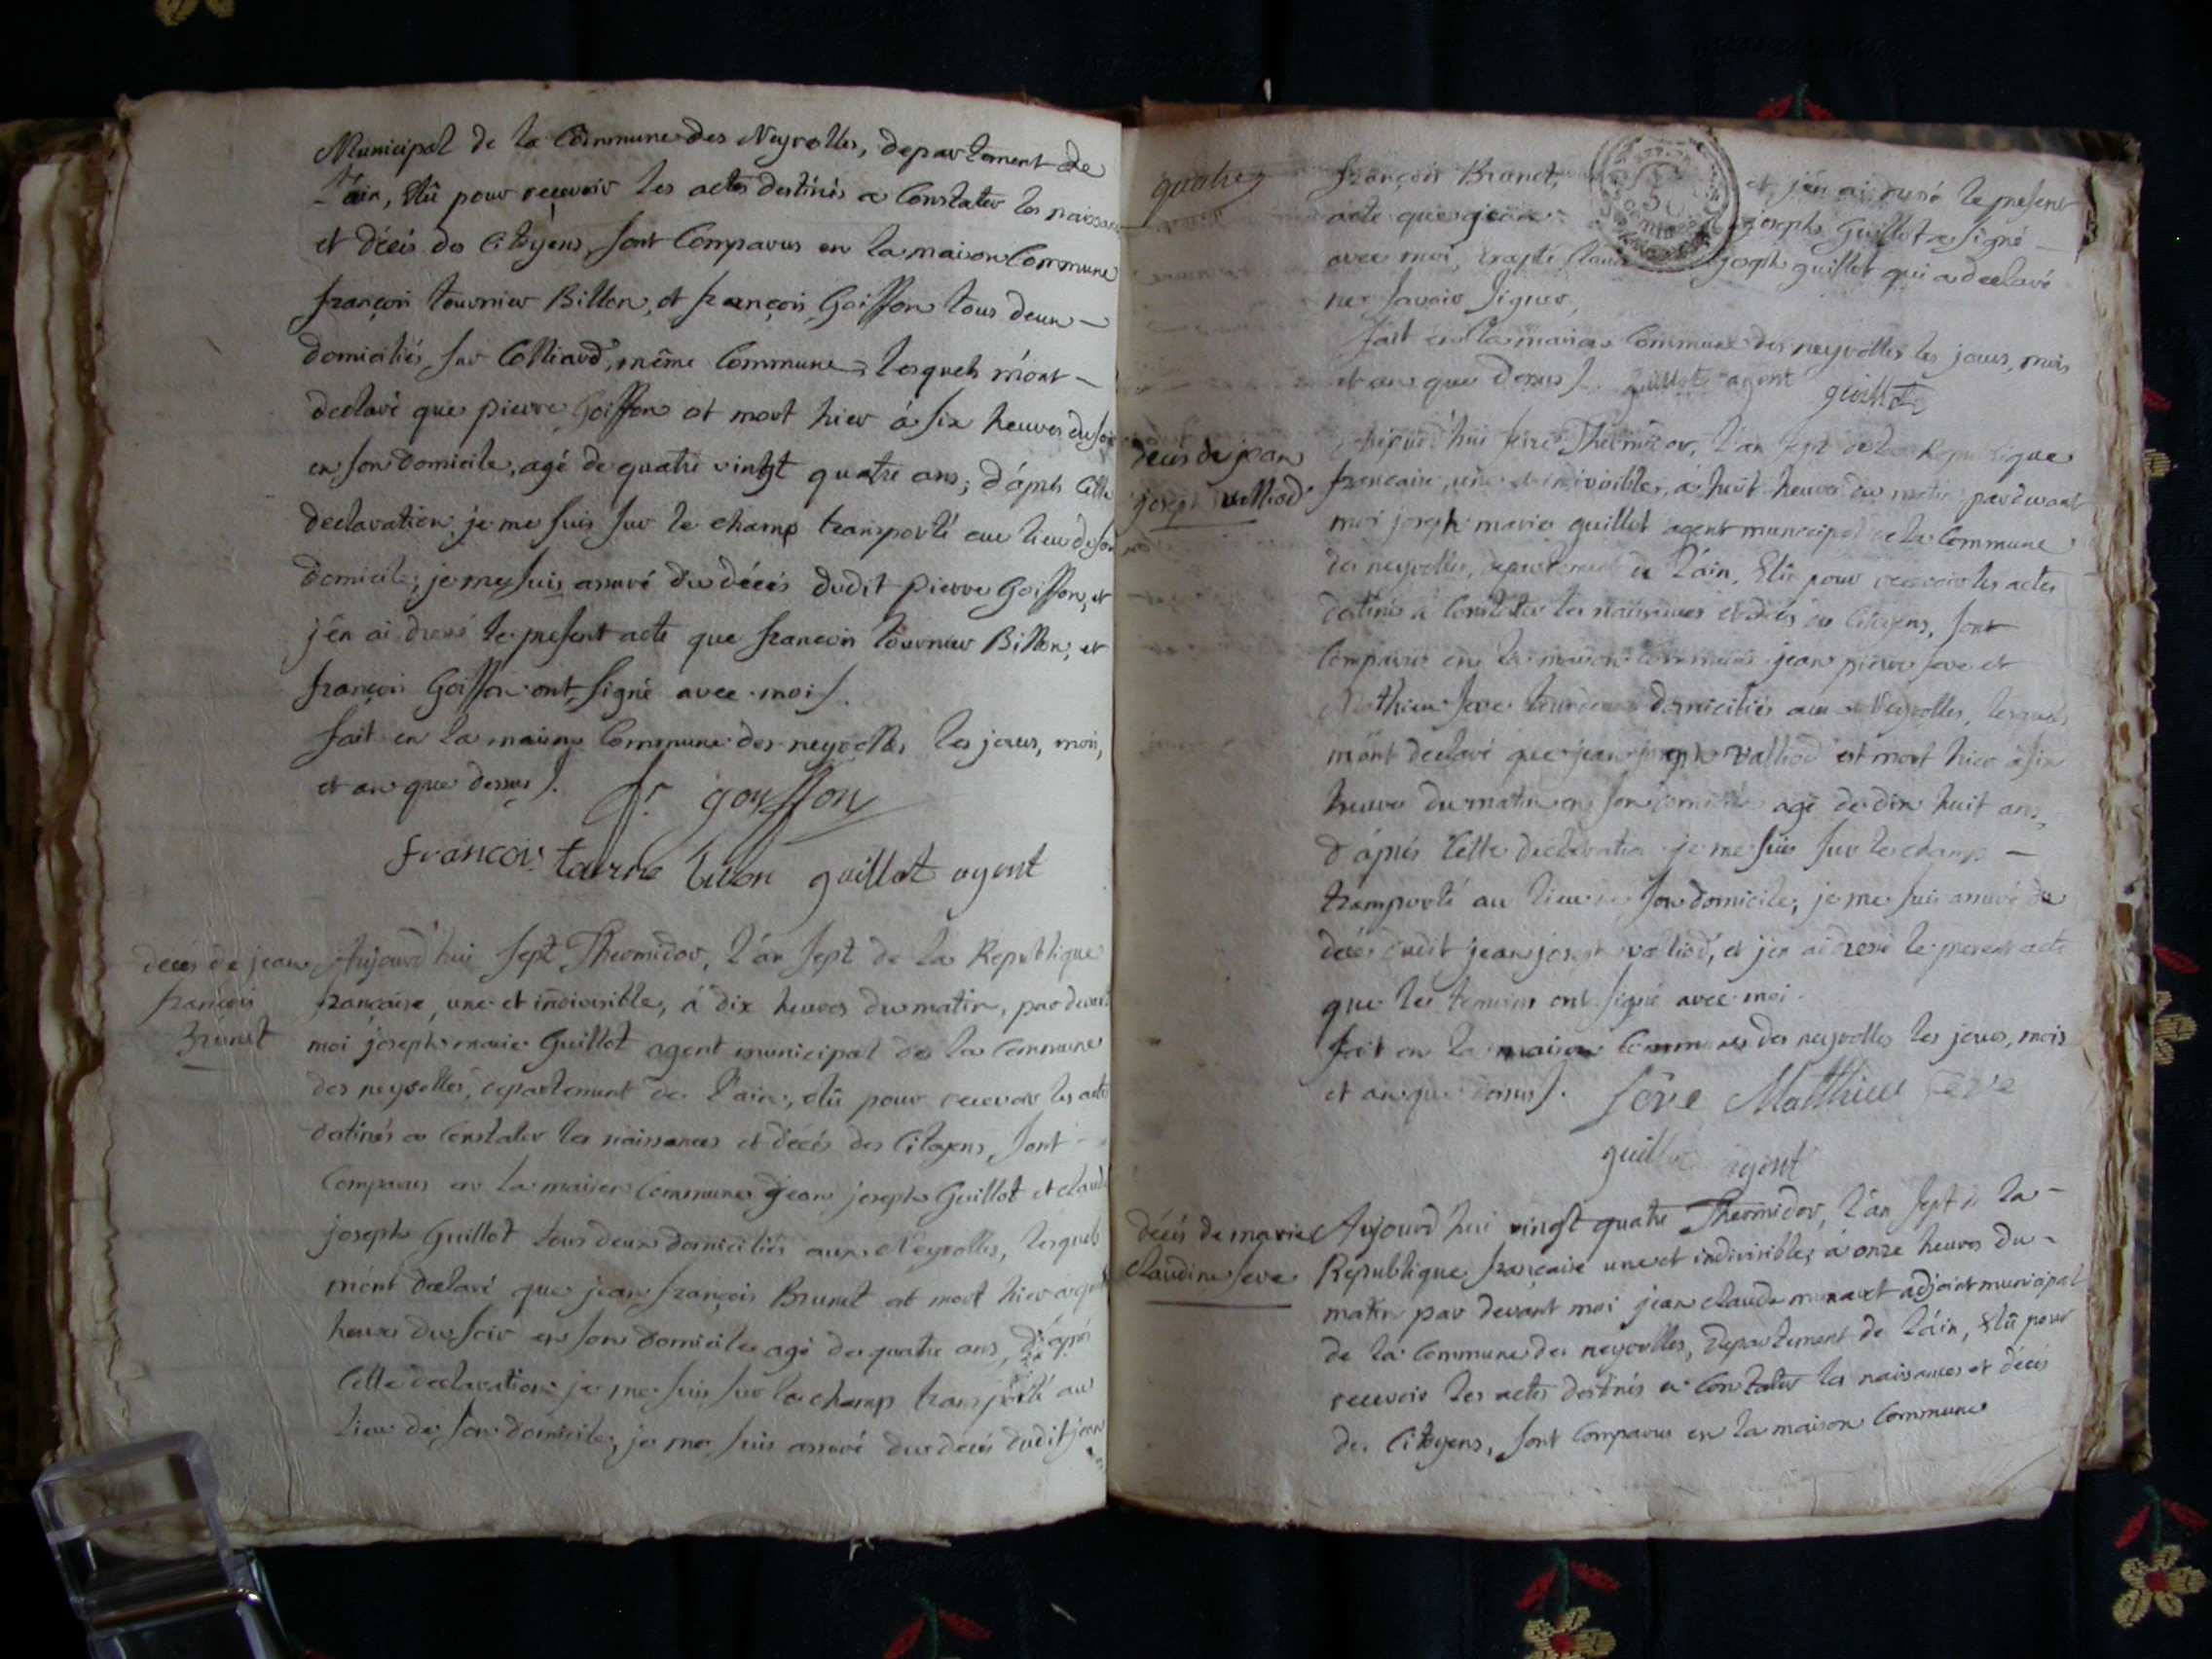 Municipal de la Commune des Neyrolles, departement de
L'ain, Elû pour recevoir les actes destinés a Constater les naissances
et décés des Citoyens, sont Comparus en la maison Commune
françois tournier Billon, et françois Goiffon tous deux
domiciliés sur Colliard, même Commune, lesquels m'ont
declaré que pierre Goiffon et mort hier á six heures du soir
en son domicile, agé de quatre vingt quatre ans; d'áprés Cette
declaration je me suis sur le champ transporté au lieu de son
domicile, je me suis assuré du décés dudit pierre Goiffon, et
j'en ai dressé le present acte que françois tournier Billon, et
françois Goiffon ont signé avec moi /.
fait en la maison Commune des neyrolles les jours, mois,
et an que dessus /. fr goiffon
françois tourne billon guillot agent
décés de jean
françois
Brunet
Aujourd'hui sept Thermidor, l'an sept de la Republique
française, une et indivisible, á dix heures du matin, par devant
moi joseph marie Guillot agent municipal de la Commune
des neyrolles, departement de l'ain, elû pour recevoir les actes
destinés a Constater les naissances et décés des Citoyens, sont
Comparus en la maison Commune jean joseph Guillot et claude
joseph Guillot tous deux domiciliés aux Neyrolles, lesquels
m'ont declaré que jean françois Brunet est mort hier a
heures du soir en son domicile agé de quatre ans, d'áprés
Cette declaration je me suis sur le champ transporté au
lieu de son domicile, je me suis assuré du decés dudit jean
quatre
françois Brunet, et j'en ai dressé le present
acte que jean joseph Guillot a signé
avec moi, excepté Claude joseph guillot qui a declaré
ne savoir signer,
fait en la maison Commune des neyrolles les jours, mois
et an que dessus /. guillot agent guillot
décés de jean
joseph valliod
Aujourd'hui Thermidor, l'an sept de la Republique
francaise, une et indivisible, á huit heures du matin par devant
moi joseph marie guillot agent municipal de la Commune
des neyrolles, departement de l'áin, Elû pour recevoir les actes
destinés á Constater les naissances et décés des Citoyens, sont
Comparus en la maison Commune jean pierre seve et
Mathieu seve tous deux domiciliés aux Neyrolles, lesquels
m'ont declaré que jean joseph valliod est mort hier á six
heures du matin en son domicile agé de dix huit ans,
d'áprés Cette declaration je me suis sur le champ
transporté au lieu de son domicile, je me suis assuré du
décés dudit jean joseph valliod, et j'en ai dressé le present acte
que les temoins ont signé avec moi.
fait en la maison Commune des neyrolles les jours, mois
et an que dessus /. Séve Matthieu seve
guillot agent
décés de marie
claudine seve
Aujourd'hui vingt quatre Thermidor, l'án sept de la
Republique française une et indivisible, á onze heures du
matin par devant moi jean claude adjoint municipal
de la Commune des neyrolles, Departement de l'áin, Elû pour
recevoir les actes destinés a Constater les naissances et décés
des Citoyens, sont Comparus en la maison Commune